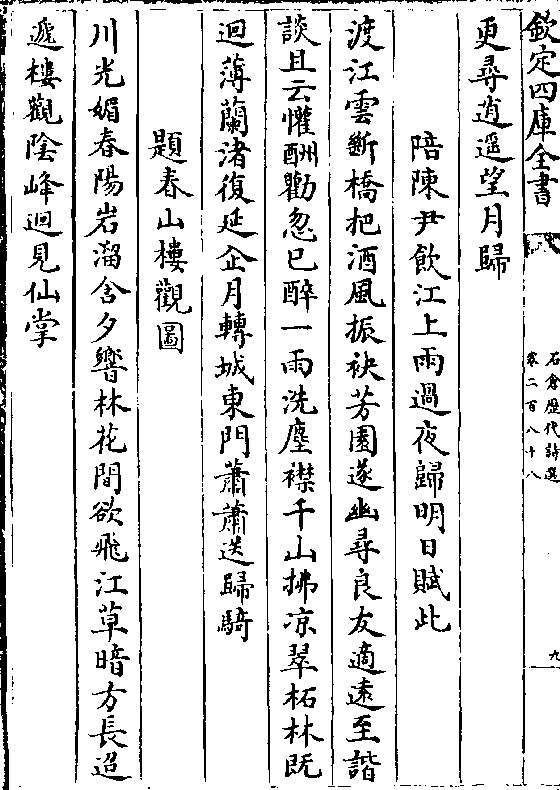 欽定四庫全書
石倉歴代詩選
卷二百八十八
九
更尋逍遥望月歸
陪陳尹飲江上雨過夜歸明日賦此
渡江雲斷橋把酒風振袂芳園遂幽尋良友適遠至諧
談且云懽酬勸忽已醉一雨洗塵襟千山拂凉翠柘林既
迴薄蘭渚復延企月轉城東門蕭蕭送歸騎
題春山樓觀圖
川光媚春陽岩溜含夕響林花間欲飛江草暗方長迢
遞樓觀陰峰迴見仙掌